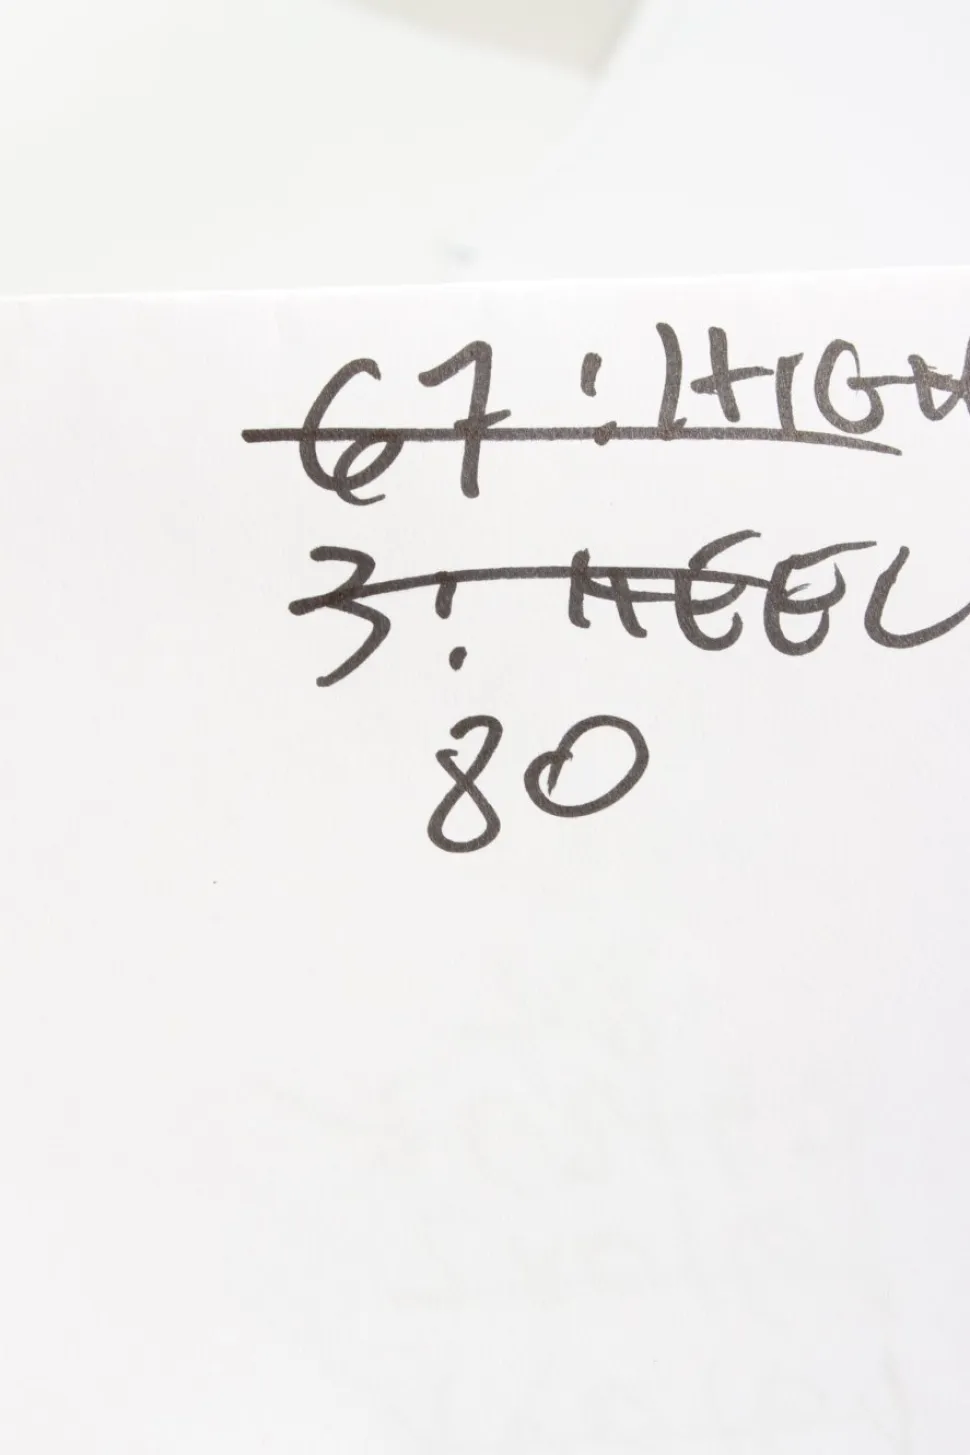 67: HIGH
3: HEEL
80